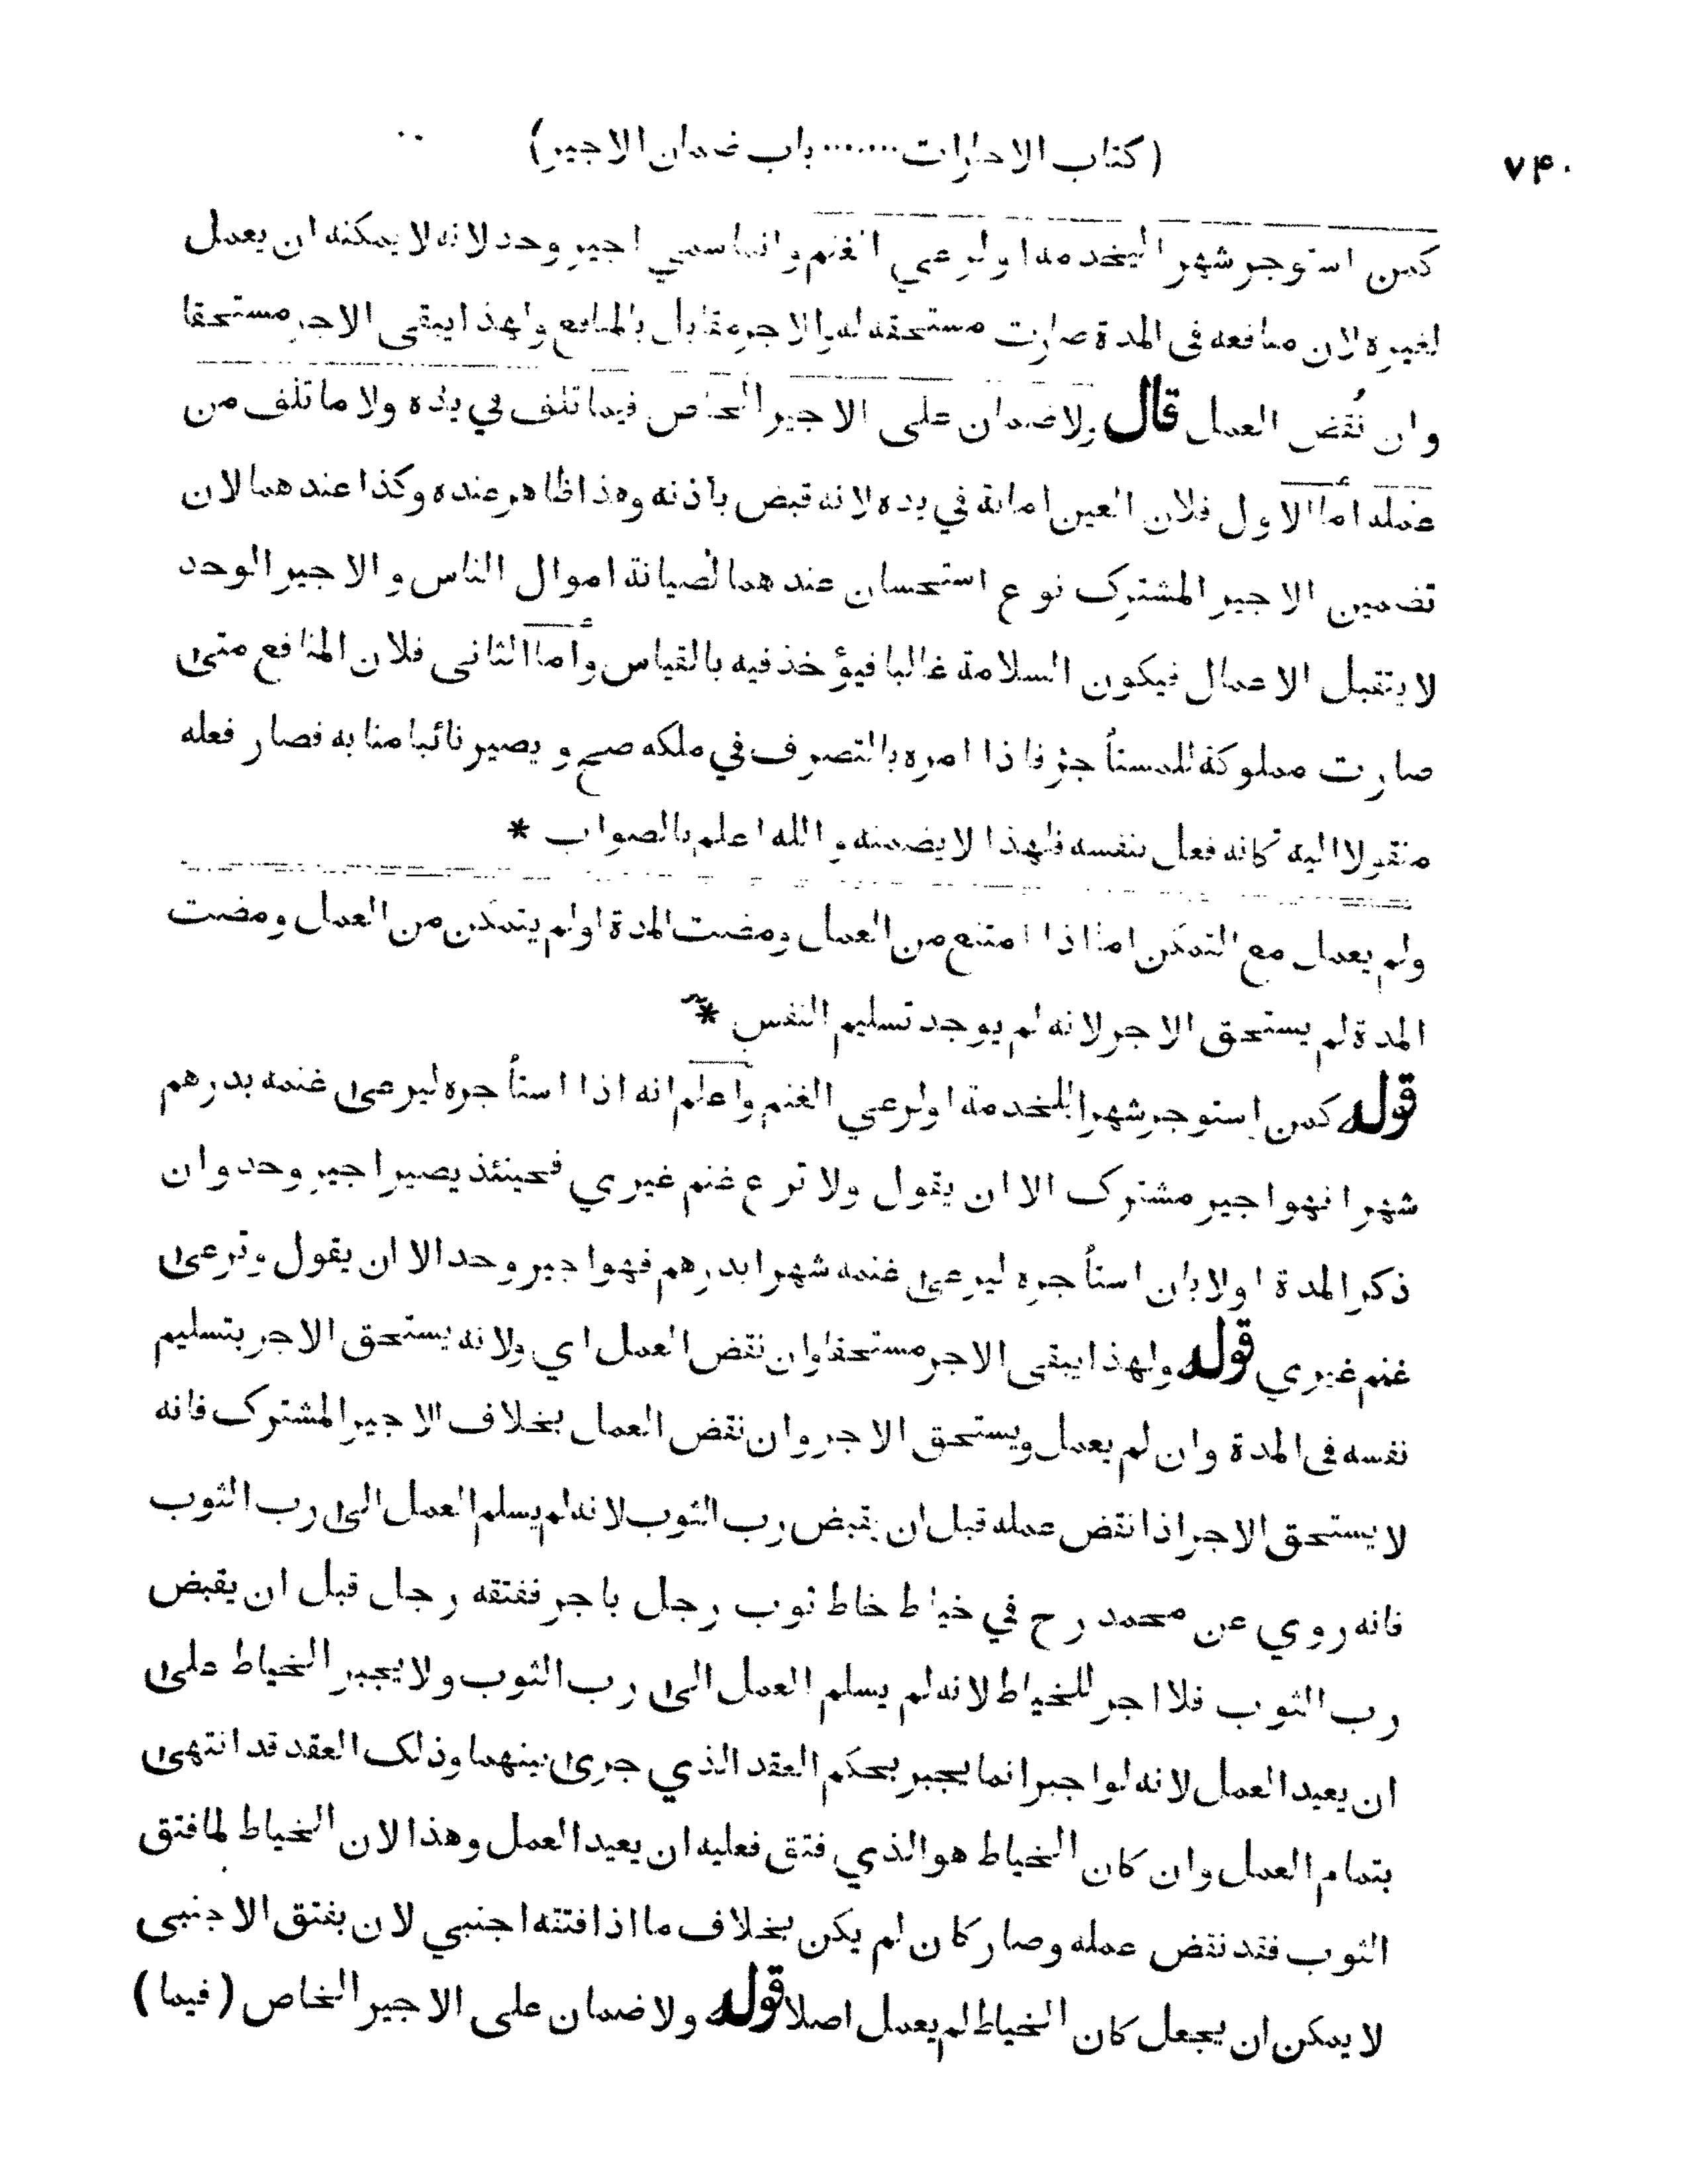 ٧٤٠
(كتاب الاجارات ....... باب ضمان الاجير)
كمن استوجر شهرا ليخدمه او لرعي الغنم وانما سمي اجير وحد لانه لا يمكنه ان يعمل
لغيره لان منافعه فى المدة صارت مستحقه له والاجر مقابل بالمنافع ولهذا يبقى الاجر مستحقا
وان نُقض العمل قال ولا ضمان على الاجير الخاص فيما تلف في يده ولا ما تلف من
عمله اما الاول فلان العين امانة في يده لانه قبض باذنه وهذا ظاهر عنده وكذا عندهما لان
تضمين الاجير المشترك نوع استحسان عندهما لصيانة اموال الناس والاجير الوحد
لا يتقبل الاعمال فيكون السلامة غالبا فيؤخذ فيه بالقياس وأما الثانى فلان المنافع متى
صارت مملوكة للمستأجر فاذا امره بالتصرف في ملكه صح ويصير نائبا منابه فصار فعله
منقولا اليه كانه فعل بنفسه فلهذا لا يضمنه والله اعلم بالصواب *
ولم يعمل مع التمكن اما اذا امتنع من العمل ومضت المدة او لم يتمكن من العمل ومضت
المدة لم يستحق الاجر لانه لم يوجد تسليم النفس *
قوله كمن استوجر شهرا للخدمة او لرعي الغنم واعلم انه اذا استأجره ليرعى غنمه بدرهم
شهرا فهو اجير مشترك الا ان يقول ولا ترع غنم غيري فحينئذ يصير اجير وحد وان
ذكر المدة اولا بان استأجره ليرعى غنمه شهرا بدرهم فهو اجير وحد الا ان يقول وترعى
غنم غيري قوله ولهذا يبقى الاجر مستحقا وان نقض العمل اي ولانه يستحق الاجر بتسليم
نفسه فى المدة وان لم يعمل ويستحق الاجر وان نقض العمل بخلاف الاجير المشترك فانه
لا يستحق الاجر اذا نقض عمله قبل ان يقبض رب الثوب لانه لم يسلم العمل الى رب الثوب
فانه روي عن محمد رح في خياط خاط ثوب رجل باجر ففتقه رجل قبل ان يقبض
رب الثوب فلا اجر للخياط لانه لم يسلم العمل الى رب الثوب ولا يجبر الخياط على
ان يعيد العمل لانه لو اجبر انما يجبر بحكم العقد الذي جرى بينهما وذلك العقد قد انتهى
بتمام العمل وان كان الخياط هو الذي فتق فعليه ان يعيد العمل وهذا لان الخياط لما فتق
الثوب فقد نقض عمله وصار كان لم يكن بخلاف ما اذا فتقه اجنبي لان بفتق الاجنبى
لا يمكن ان يجعل كان الخياط لم يعمل اصلا قوله ولا ضمان على الاجير الخاص (فيما)